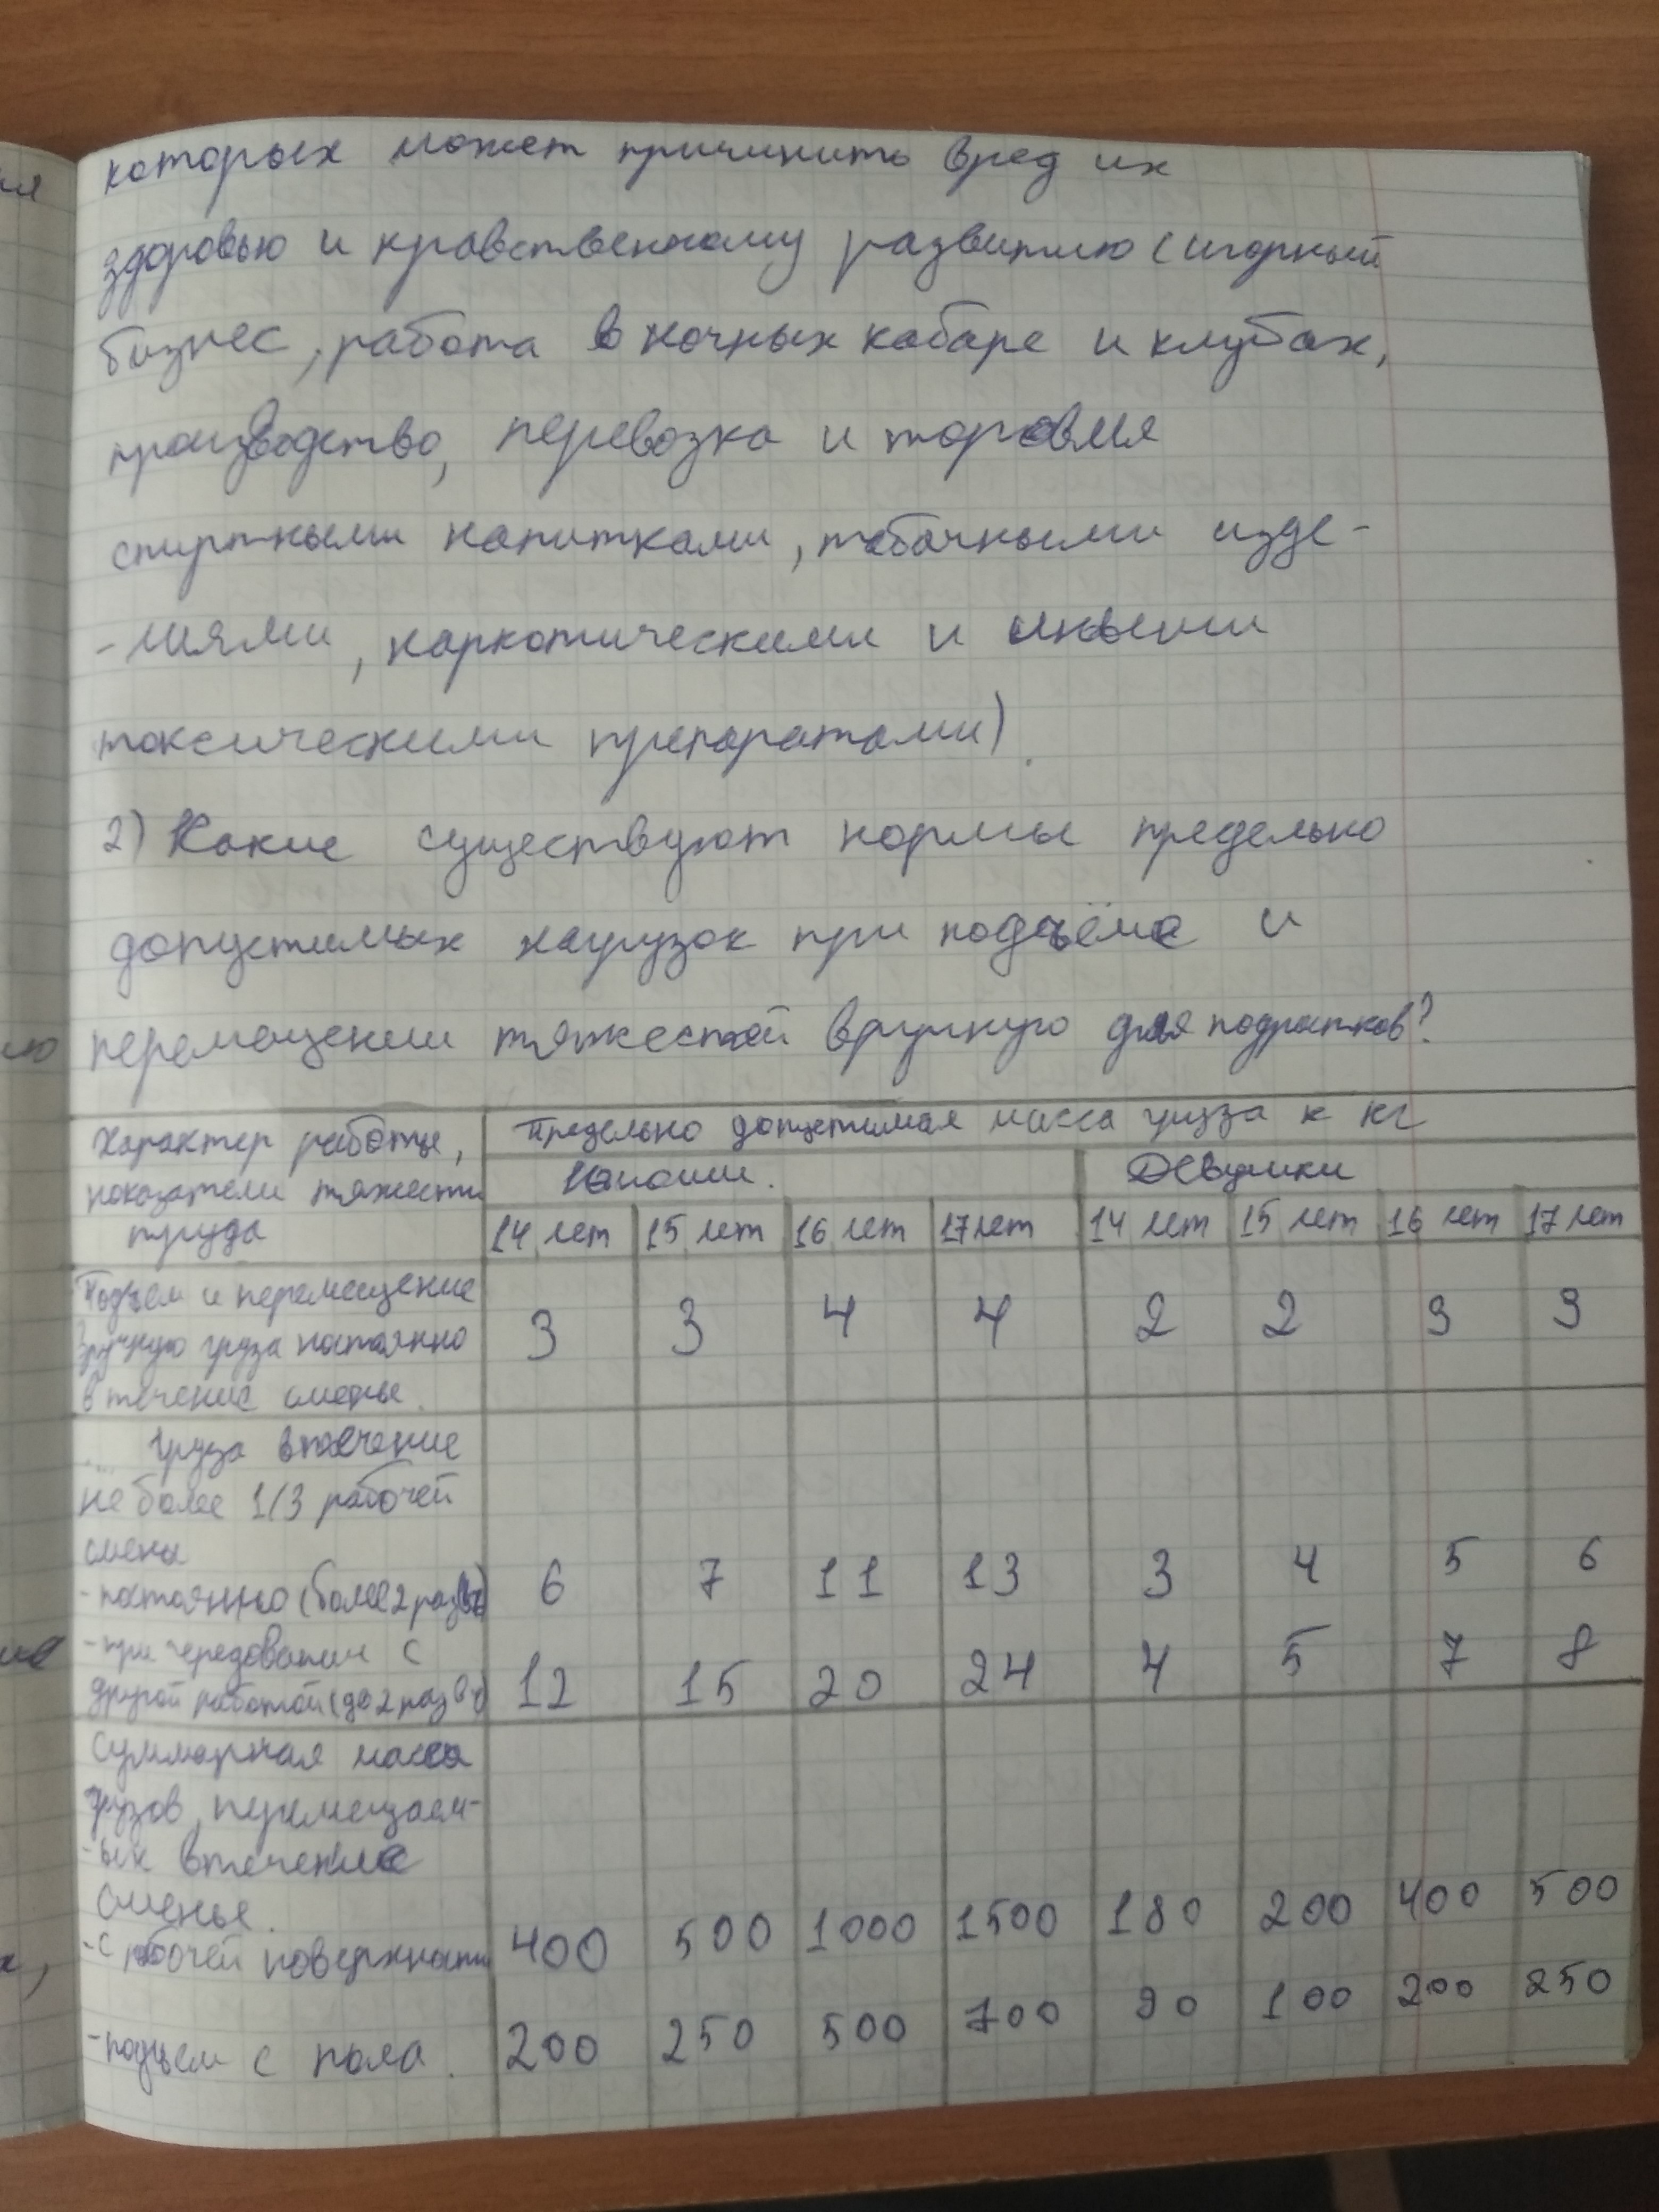 которых может причинить вред их
здоровью и нравственному развитию (игорный
бизнес, работа в ночных кабаре и клубах,
производство, перевозка и торовля
спиртными напитками, табачными изде-
-лиями, наркотическими и иными
токсическими препаратами).
2) Какие существуют нормы предельно
допустимых нагрузок при подъёме и
перемещении тяжестей вручную для подростков?
Характер работы, показатели тяжести труда
Предельно допустимая масса груза к кг
Юноши. Девушки
14 лет 15 лет 16 лет 17 лет 14 лет 15 лет 16 лет 17 лет
Подъем и перемещение
вручную груза постоянно
в течение смены.
3 3 4 4 2 2 3 3
... груза втечение
не более 1/3 рабочей
смены
-постоянно (более 2 раз в ч) 6 7 11 13 3 4 5 6
-при чередовании с
другой работой (до 2 раз в ч) 12 15 20 24 4 5 7 8
Суммарная масса
грузов, перемещаем-
-ых втечение
смены.
-с рабочей поверхности 400 500 1000 1500 180 200 400 500
-подъем с пола. 200 250 500 700 90 100 200 250
ия
ию
х,